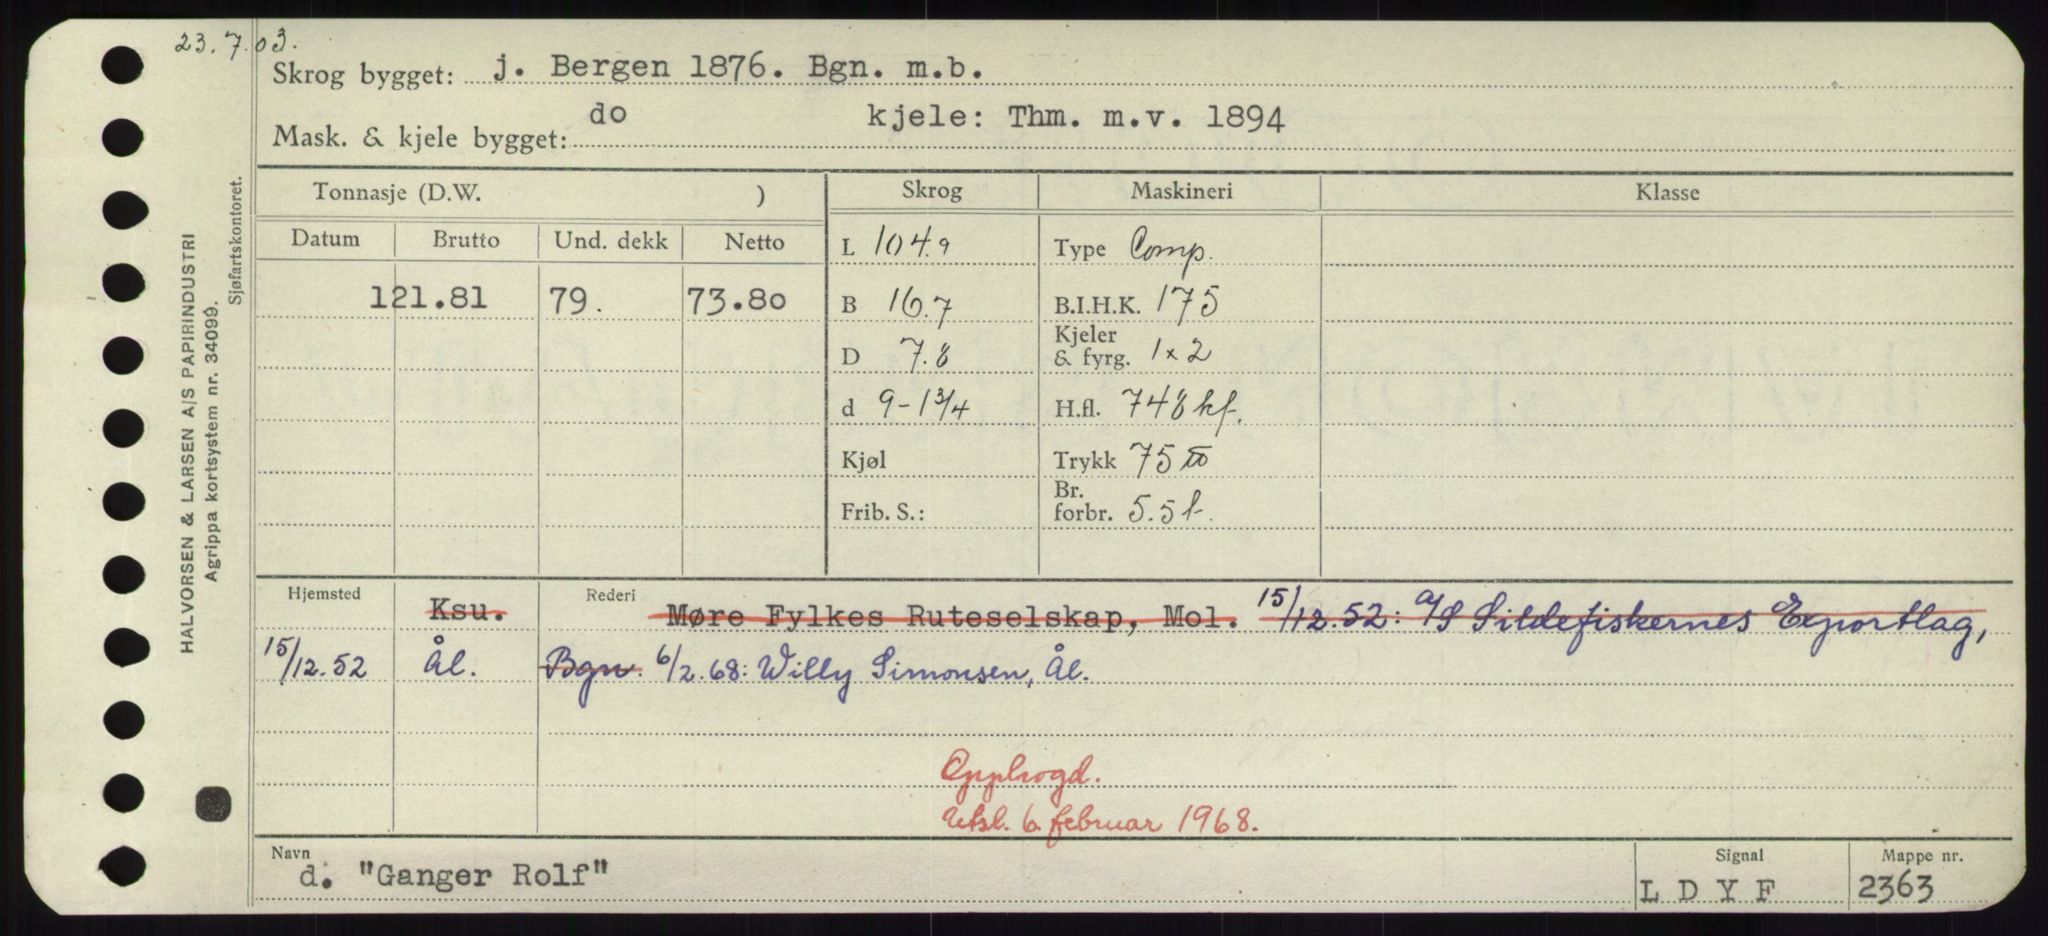 23.7.03.
Skrog bygget: j. Bergen 1876. Bgn. m.b.
Mask. & kjele bygget: do kjele: Thm. m.v. 1894
HALVORSEN & LARSEN A/S PAPIRINDUSTRI
Agrippa kortsystem nr. 34099.
Sjøfartskontoret.
Tonnasje (D.W. ) Skrog Maskineri Klasse
Datum Brutto Und. dekk Netto L 104.9 Type Comp.
121.81 79. 73.80 B 16.7 B.I.H.K. 175
D 7.8 Kjeler & fyrg. 1x2
d 9-1 3/4 H.fl. 748 kf.
Kjøl Trykk 75
Frib. S.: Br. forbr. 5.5 t.
Hjemsted Ksu. Rederi Møre Fylkes Ruteselskap, Mol. 15/12.52: A/S Sildefiskernes Exportlag,
15/12.52 Ål. Bgn. 6/2.68: Willy Simonsen, Ål.
Opphogd.
Utsl. 6. februar 1968.
Navn d. "Ganger Rolf" Signal LDYF Mappe nr. 2363